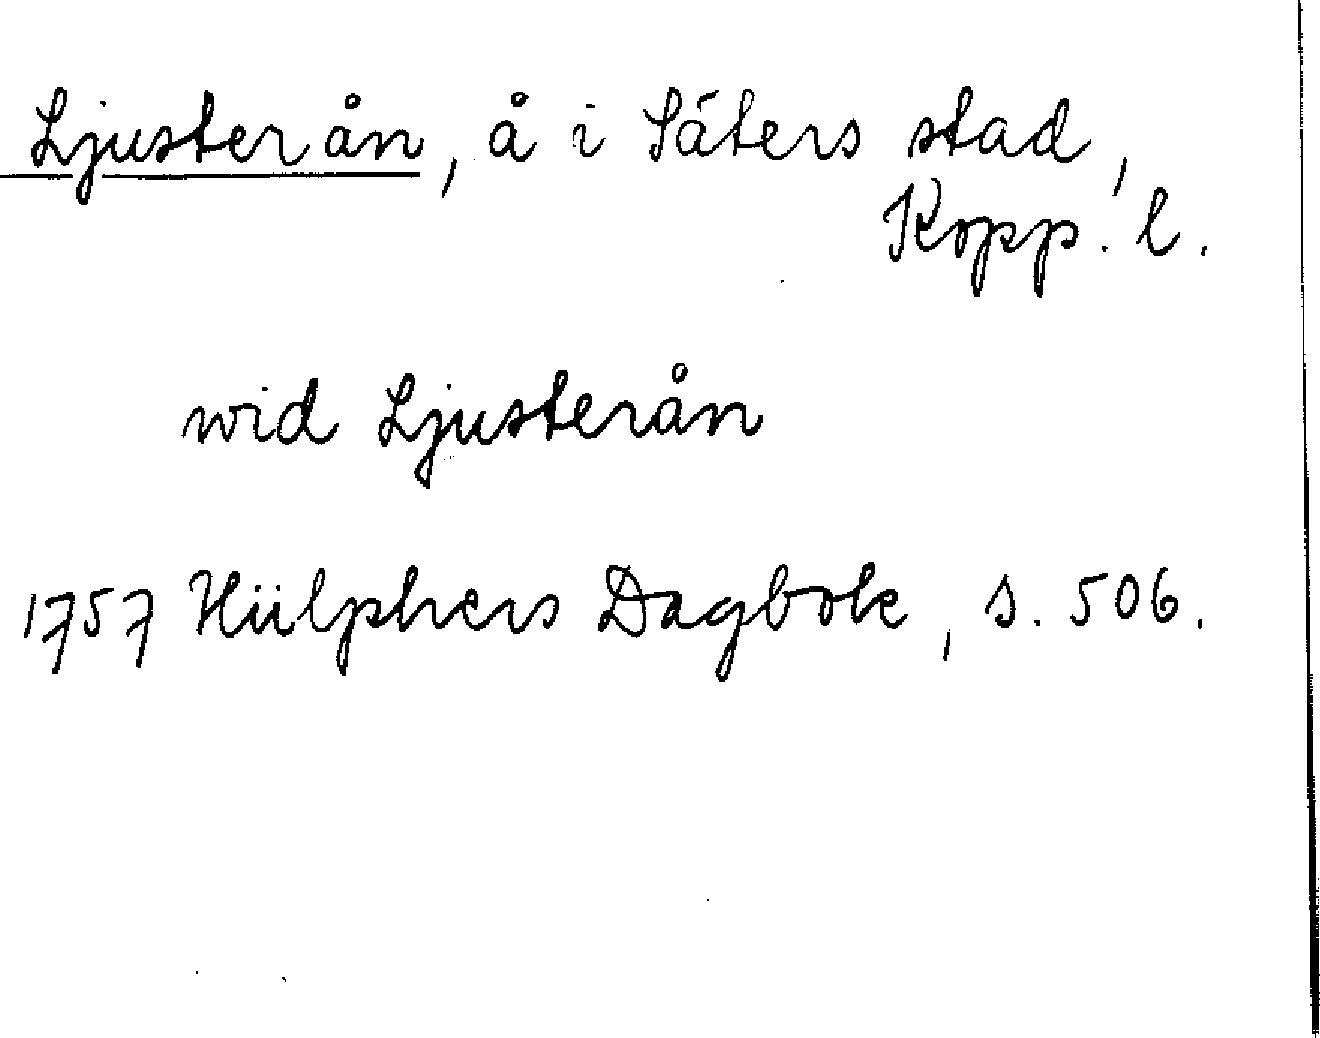 Ljusterån, å i Säters stad,
Kopp. l.
wid Ljusterån
1757 Hülphers Dagbok, s. 506.